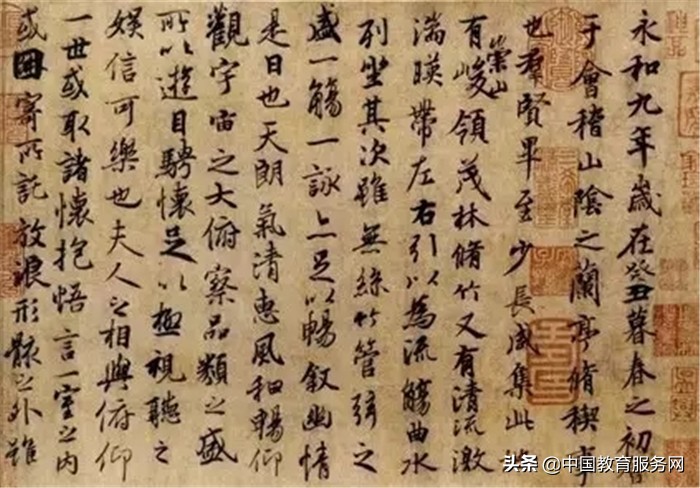 永和九年歲在癸丑暮春之初會
于會稽山陰之蘭亭脩稧事
也羣賢畢至少長咸集此地
有崇山峻領茂林脩竹又有清流激
湍暎帶左右引以為流觴曲水
列坐其次雖無絲竹管弦之
盛一觴一詠亦足以暢叙幽情
是日也天朗氣清惠風和暢仰
觀宇宙之大俯察品類之盛
所以遊目騁懷足以極視聽之
娛信可樂也夫人之相與俯仰
一世或取諸懷抱悟言一室之內
或因寄所託放浪形骸之外雖
头条 @中国教育服务网